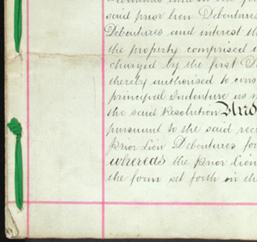 said prior lien Debentures
Debentures and interest th
the property comprised i
charged by the first D
thereby authorised to crea
principal Indenture as m
the said Resolution And
pursuant to the said rec
prior Lien Debentures for
whereas the prior lien
the form set forth in th